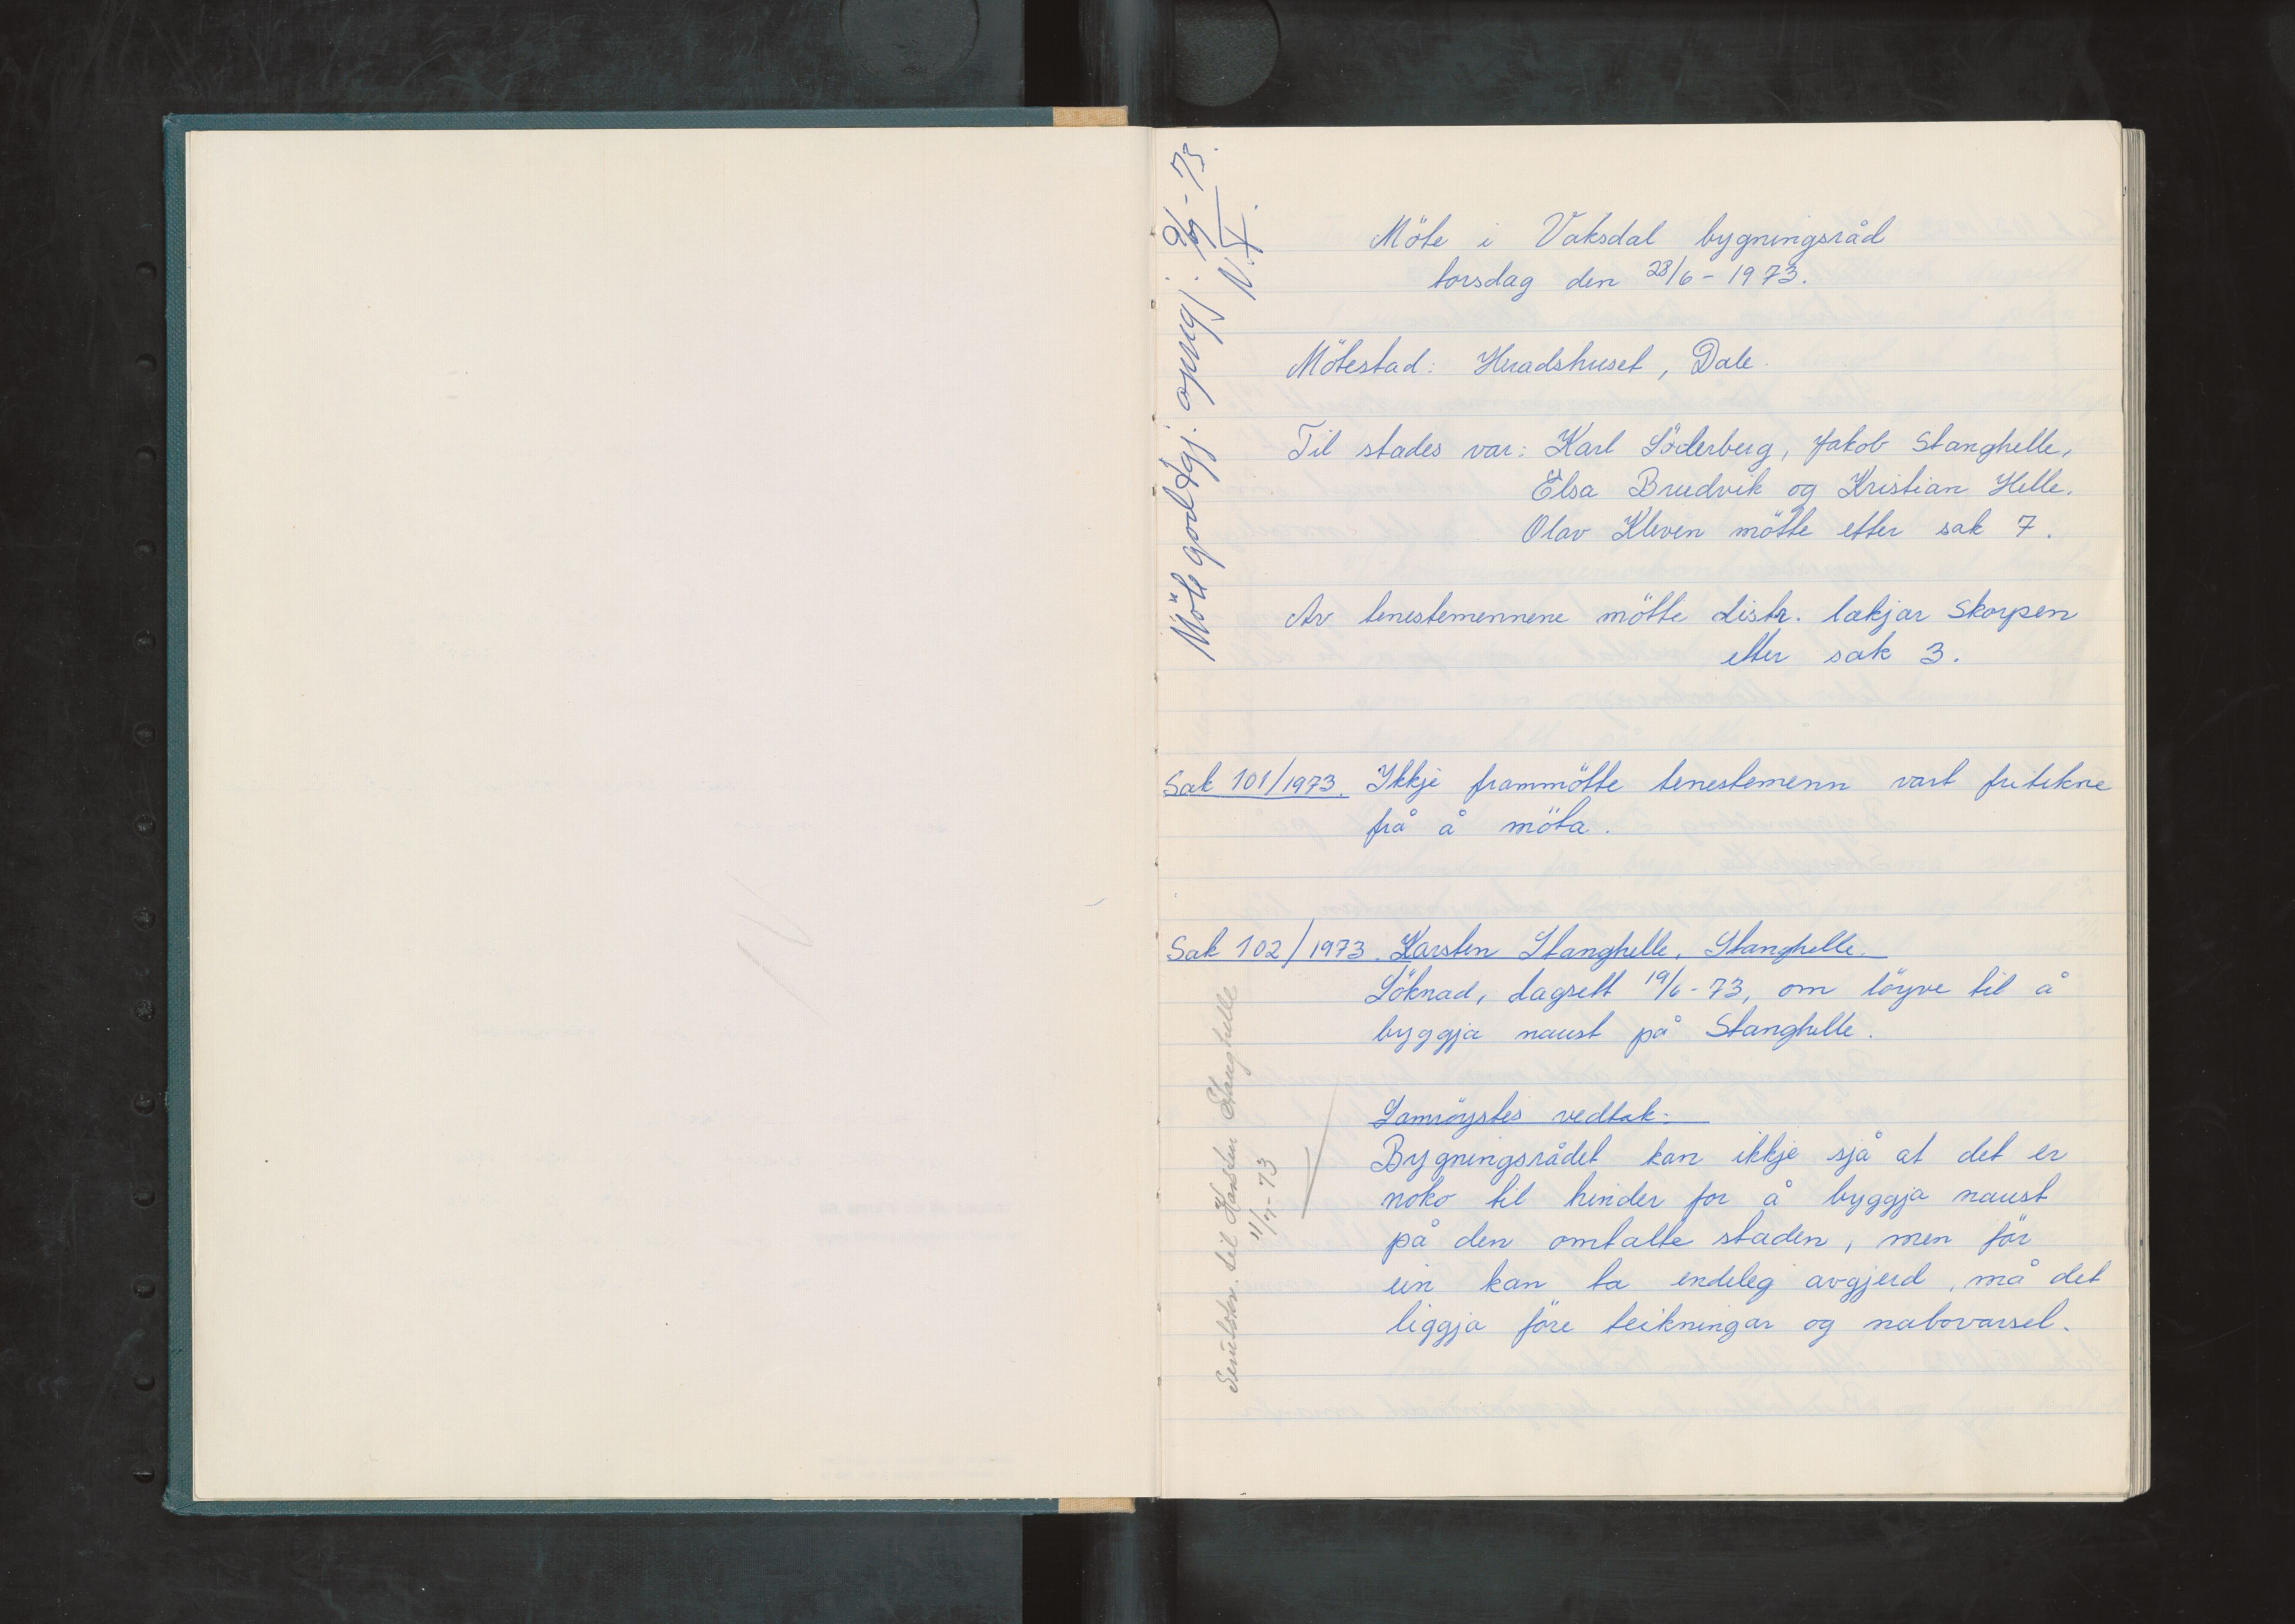 Möte i Vaksdal bygningsråd
torsdag den 28/6 - 1973.
Mötestad: Heradshuset, Dale.
Til stades var: Karl Söderberg, Jakob Stanghelle,
Elsa Brudvik og Kristian Helle.
Olav Kleven mötte etter sak 7.
Av tenestemennene mötte distr. lækjar Skorpen
etter sak 3.
Sak 101/1973. Ikkje frammötte tenestemenn vart fritekne
frå å möta.
Sak 102/1973. Karsten Stanghelle, Stanghelle.
Söknad, dagsett 19/6 - 73, om löyve til å
byggja naust på Stanghelle.
Samröystes vedtak:
Bygningsrådet kan ikkje sjå at det er
noko til hinder for å byggja naust
på den omtalte staden, men för
ein kan ta endeleg avgjerd, må det
liggja före teikningar og nabovarsel.
Möte godtgj. oppgj.
- 73.
til Karsten Stanghelle
11/7 - 73